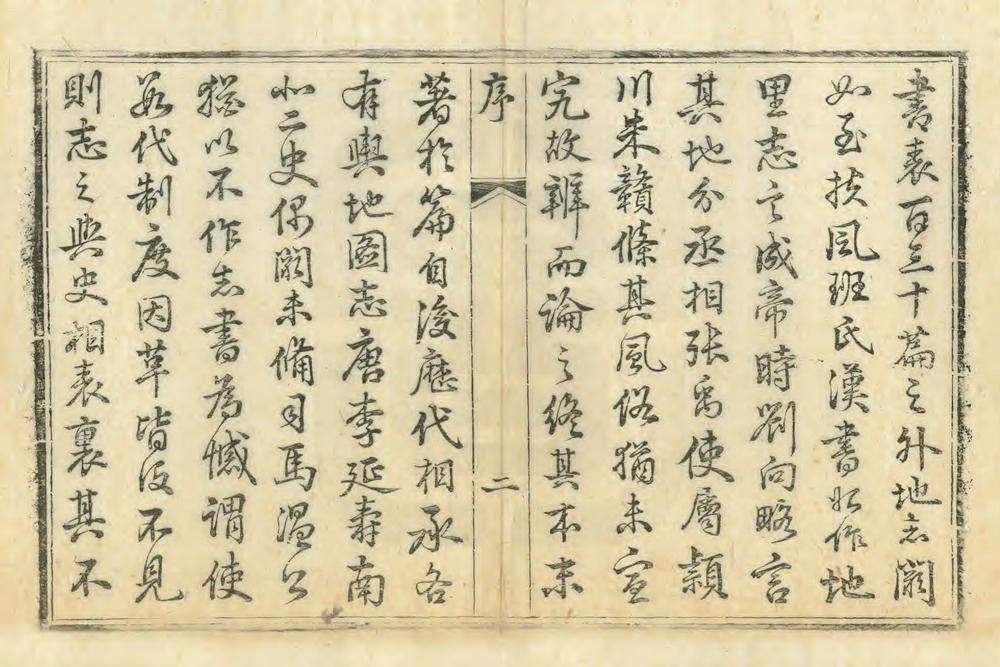 書表百三十篇之外地志闕
如至扶風班氏漢書始作地
里志言成帝時劉向略言
其地分丞相張禹使屬潁
川朱贛條其風俗猶未宣
究故輯而論之終其本末
序
二
著於篇自後歷代相承各
有輿地圖志唐李延壽南
北二史偶闕未備司馬溫公
猶以不作志書為憾謂使
數代制度因革皆沒不見
則志之與史相表裏其不